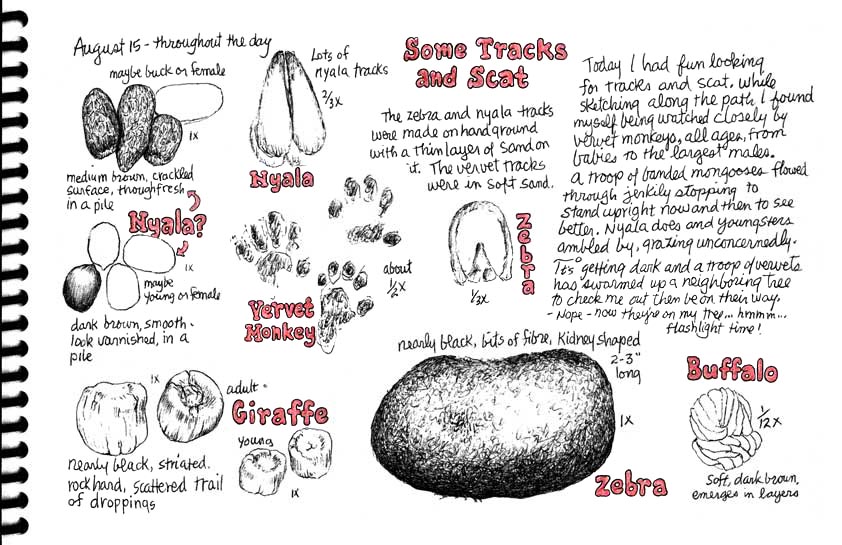 August 15 - throughout the day
maybe buck or female
1x
medium brown, crackled
surface, though fresh
in a pile
Nyala?
1x
maybe
young or female
dark brown, smooth -
look varnished, in a
pile
Lots of
nyala tracks
2/3x
Nyala
Some Tracks
and Scat
The zebra and nyala tracks
were made on hard ground
with a thin layer of sand on
it. The vervet tracks
were in soft sand.
Vervet
Monkey
about
1/2x
Zebra
1/3x
Today I had fun looking
for tracks and scat. While
sketching along the path I found
myself being watched closely by
vervet monkeys, all ages, from
babies to the largest males.
a troop of banded mongooses flowed
through jerkily stopping to
stand upright now and then to see
better. Nyala does and youngsters
ambled by, grazing unconcernedly.
It's getting dark and a troop of vervets
has swarmed up a neighboring tree
to check me out then be on their way.
- Nope - now they're on my tree... hmmm...
flashlight time!
1x
adult
Giraffe
young
1x
nearly black, striated.
rock hand, scattered trail
of droppings
nearly black, bits of fibre, kidney shaped
2-3"
long
1x
Zebra
Buffalo
1/12x
Soft, dark brown,
emerges in layers